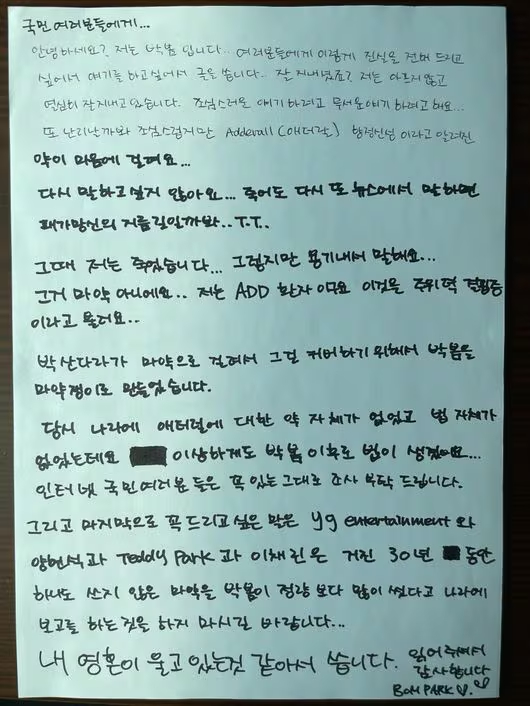 국민 여러분들에게...
안녕하세요? 저는 박봄 입니다... 여러분들에게 이렇게 진실을 전해 드리고
싶어서 얘기를 하고싶어서 글을 씁니다. 잘 지내셨죠? 저는 아프지 않고
열심히 잘지내고 있습니다. 조심스러운 얘기 하려고 무서운얘기 하려고 해요...
또 난리날까봐 조심스럽지만 Adderall (애더랄) 향정신성 이라고 알려진
약이 마음에 걸려요...
다시 말하고 싶지 않아요... 죽어도 다시 또 뉴스에서 말하면
패가망신의 지름길일까봐..T.T..
그때 저는 죽었습니다... 그렇지만 용기내서 말해요...
그거 마약 아니에요.. 저는 ADD 환자 이구요 이것을 주위력 결핍증
이라고 불러요..
박산다라가 마약으로 걸려서 그걸 커버하기위해서 박봄을
마약쟁이로 만들었습니다.
당시 나라에 애터럴에 대한 약 자체가 없었고 법 자체가
없었는데요 이상하게도 박봄 이후로 법이 생겼어요...
인터넷 국민여러분 들은 꼭 있는 그대로 조사 부탁 드립니다.
그리고 마지막으로 꼭 드리고 싶은 말은 yg entertainment 와
양현석과 Teddy Park 과 이채린은 거진 30년 동안
하나도 쓰지 않은 마약을 박봄이 정량 보다 많이 썼다고 나라에
보고를 하는것을 하지 마시길 바랍니다...
내 영혼이 울고 있는것 같아서 씁니다. 읽어주셔서
감사합니다
BOM PARK ♡.♡